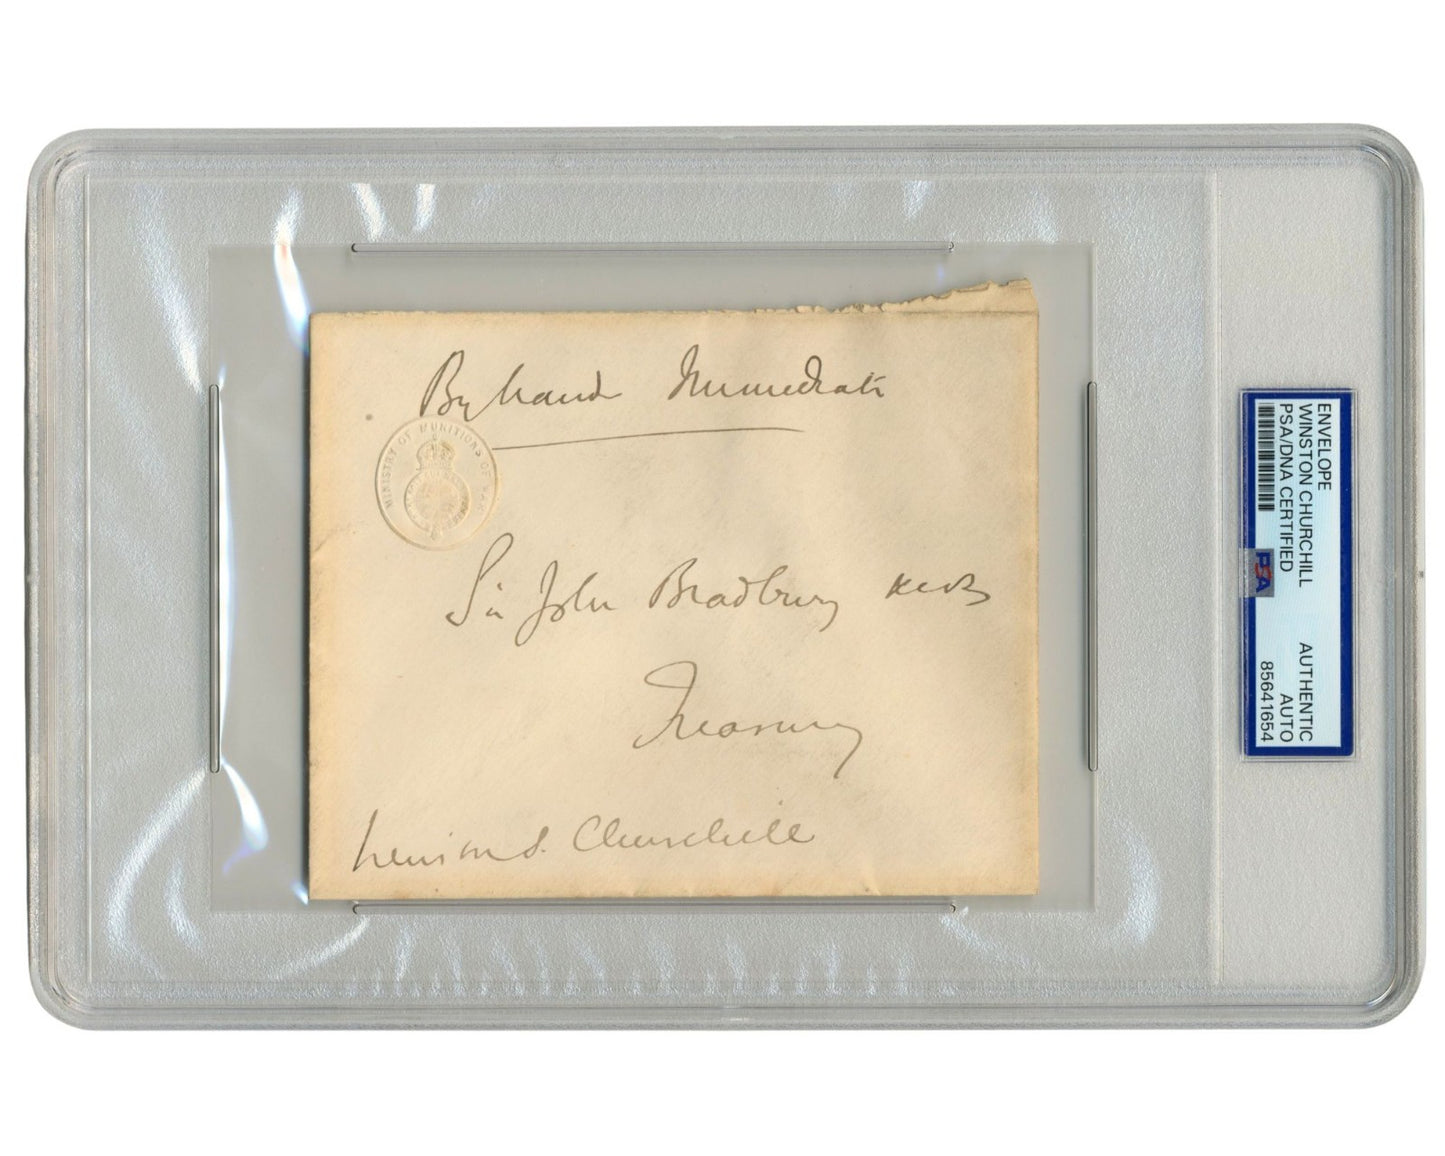 By hand Immediate
MINISTRY OF MUNITIONS OF WAR
Sir John Bradbury KCB
Treasury
Winston S. Churchill
ENVELOPE
WINSTON CHURCHILL AUTHENTIC
PSA/DNA CERTIFIED AUTO
PSA 85641654